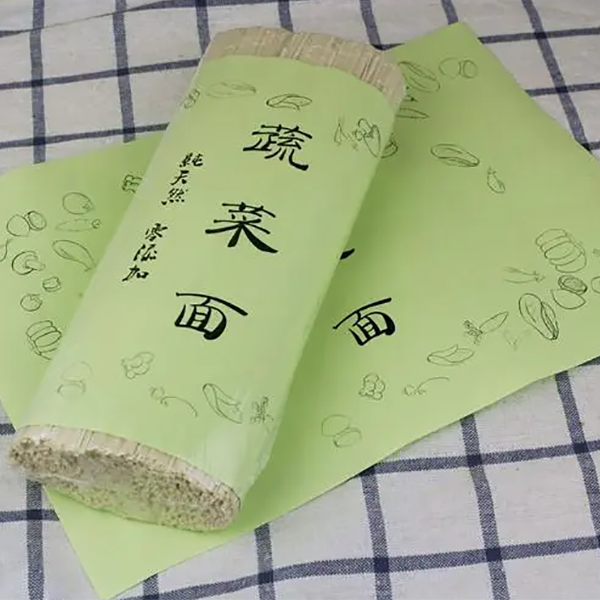 蔬菜面
純天然
零添加
面